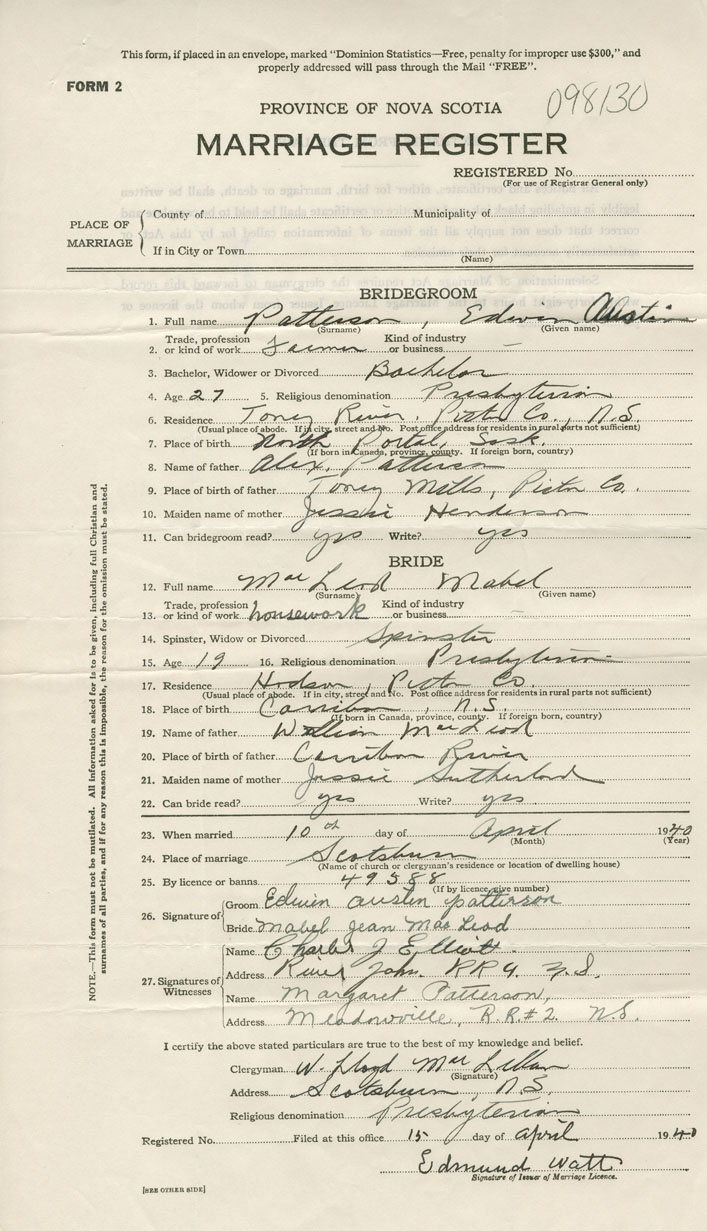 This form, if placed in an envelope, marked "Dominion Statistics—Free, penalty for improper use $300," and
properly addressed will pass through the Mail "FREE".
FORM 2
098130
PROVINCE OF NOVA SCOTIA
MARRIAGE REGISTER
REGISTERED No.
(For use of Registrar General only)
PLACE OF MARRIAGE
County of Municipality of
If in City or Town
(Name)
BRIDEGROOM
1. Full name Patterson, Edwin Austin
(Surname) (Given name)
2. Trade, profession or kind of work Farmer Kind of industry or business —
3. Bachelor, Widower or Divorced Bachelor
4. Age 27 5. Religious denomination Presbyterian
6. Residence Toney River, Pictou Co., N.S.
(Usual place of abode. If in city, street and No. Post office address for residents in rural parts not sufficient)
7. Place of birth North Portal, Sask.
(If born in Canada, province, county. If foreign born, country)
8. Name of father Alex. Patterson
9. Place of birth of father Toney Mills, Pictou Co.
10. Maiden name of mother Jessie Henderson
11. Can bridegroom read? yes Write? yes
BRIDE
12. Full name MacLeod Mabel
(Surname) (Given name)
13. Trade, profession or kind of work housework Kind of industry or business —
14. Spinster, Widow or Divorced Spinster
15. Age 19 16. Religious denomination Presbyterian
17. Residence Hodson, Pictou Co.
(Usual place of abode. If in city, street and No. Post office address for residents in rural parts not sufficient)
18. Place of birth Carribou, N.S.
(If born in Canada, province, county. If foreign born, country)
19. Name of father William MacLeod
20. Place of birth of father Carribou River
21. Maiden name of mother Jessie Sutherland
22. Can bride read? yes Write? yes
23. When married 10th day of April 1940
(Month) (Year)
24. Place of marriage Scotsburn
(Name of church or clergyman's residence or location of dwelling house)
25. By licence or banns 49588
(If by licence, give number)
26. Signature of
Groom Edwin Austen Patterson
Bride Mabel Jean MacLeod
27. Signatures of Witnesses
Name Charles J Elliott
Address River John. RR 4 N.S.
Name Margaret Patterson,
Address Meadowville, R.R.#2. N.S.
I certify the above stated particulars are true to the best of my knowledge and belief.
Clergyman W. Lloyd MacLellan
(Signature)
Address Scotsburn, N.S.
Religious denomination Presbyterian
Registered No. Filed at this office 15 day of April 1940
Edmund Watt
Signature of Issuer of Marriage Licence.
[SEE OTHER SIDE]
NOTE.—This form must not be mutilated. All information asked for is to be given, including full Christian and
surnames of all parties, and if for any reason this is impossible, the reason for the omission must be stated.